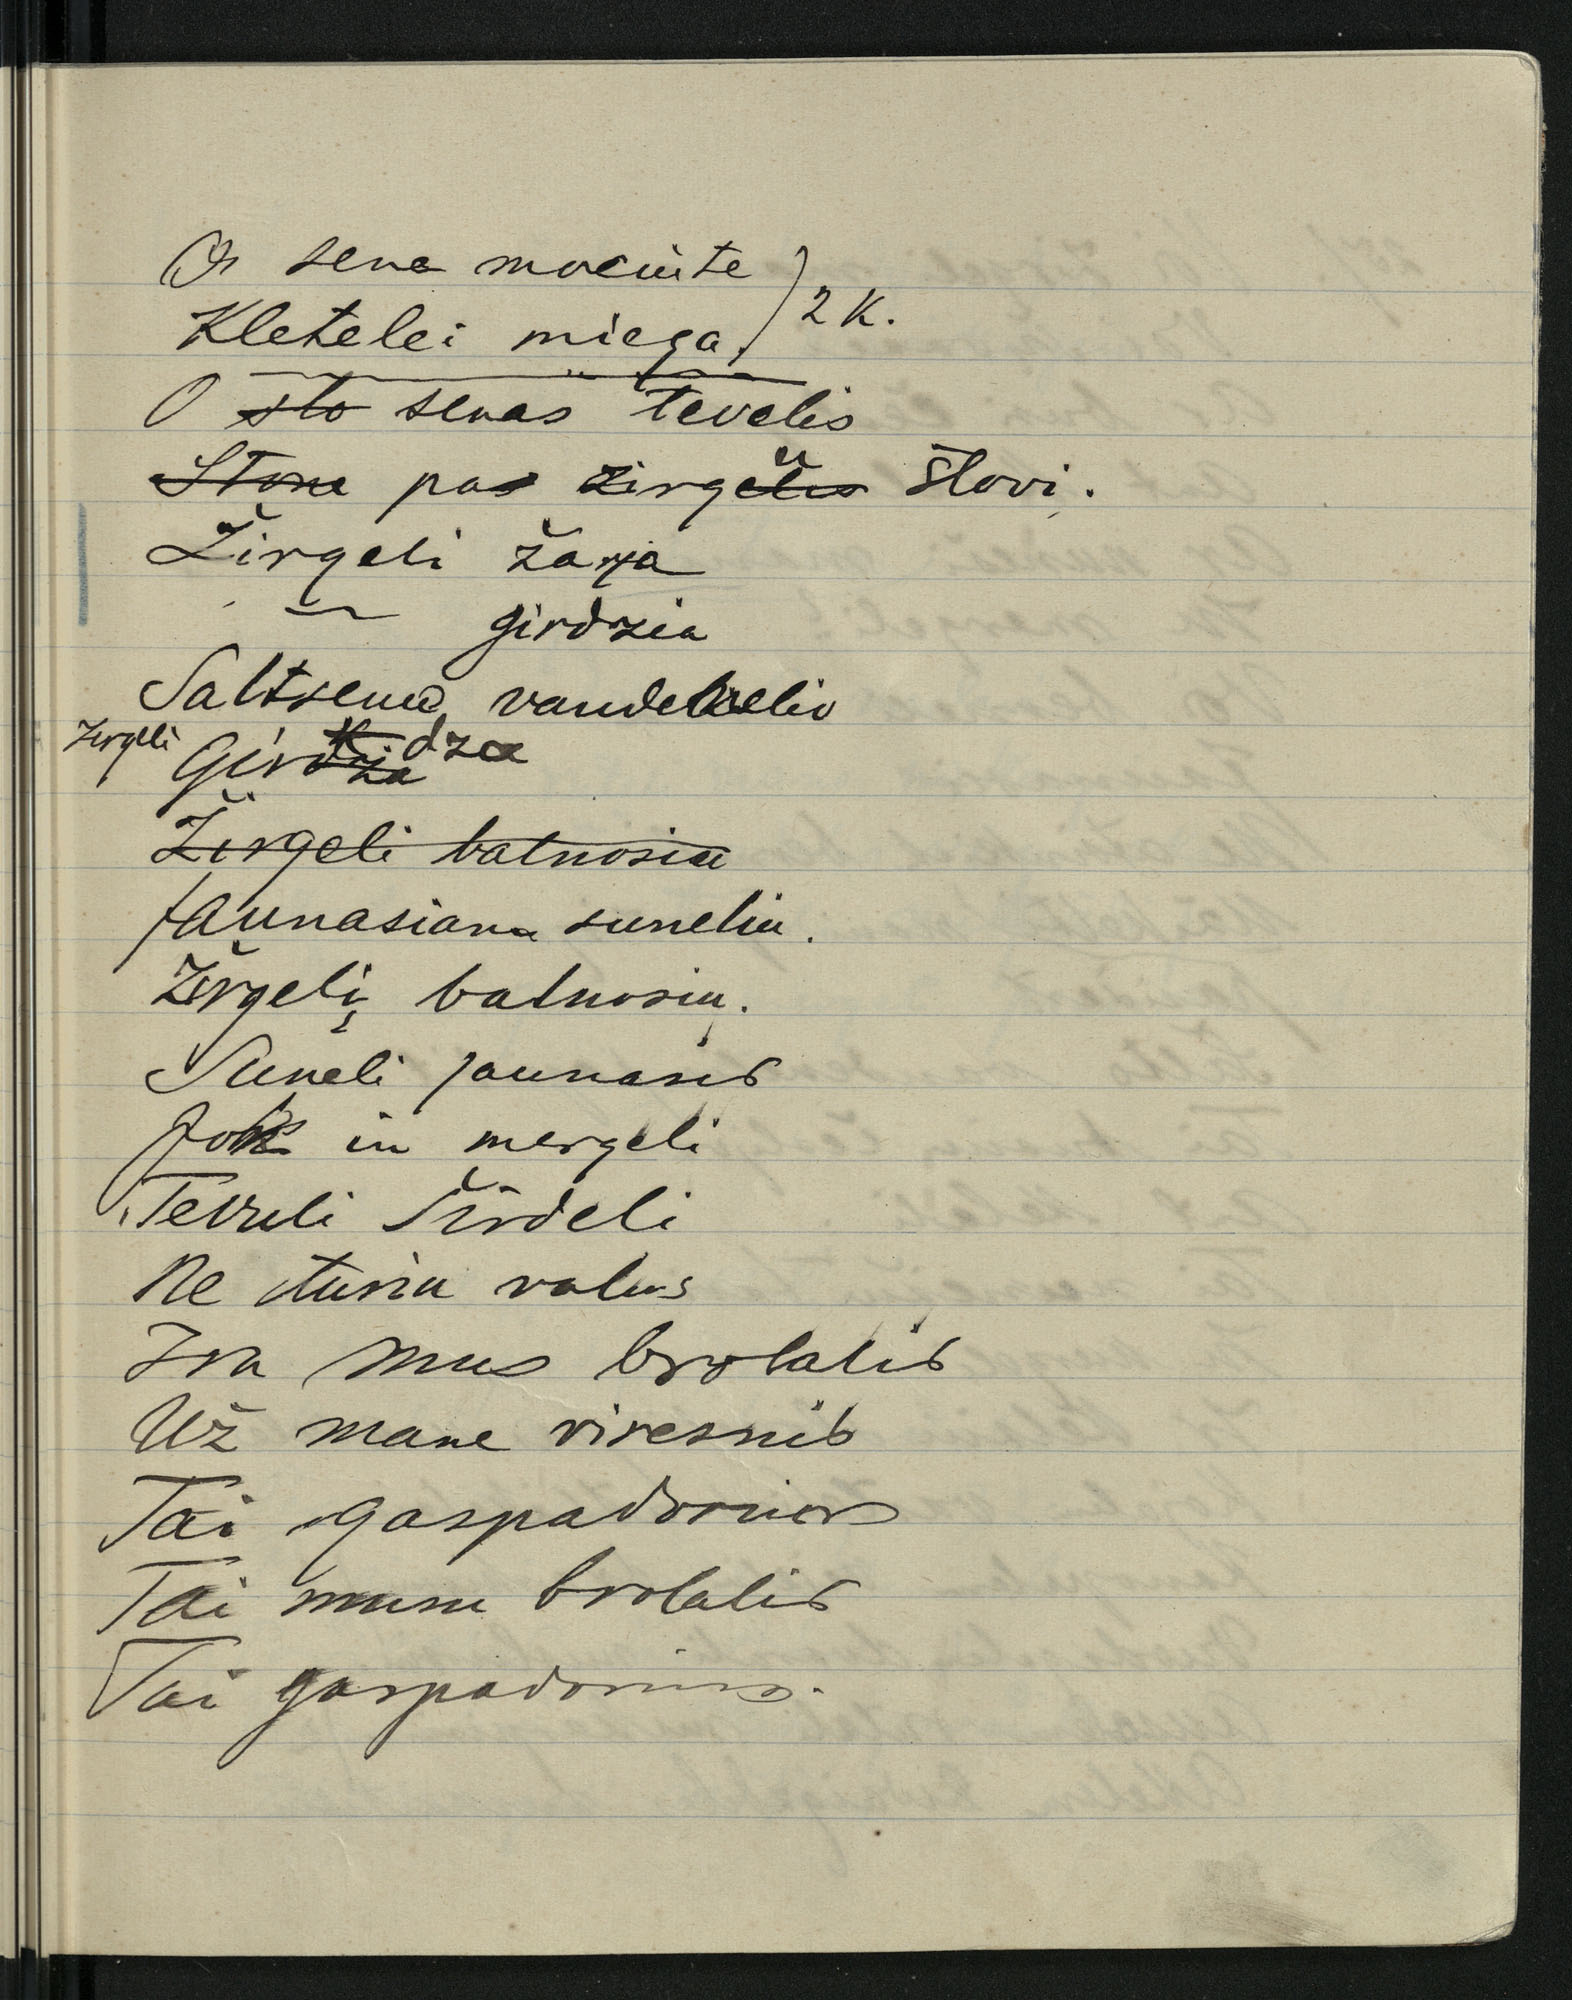 O sena mociute
Kletelei miega } 2 K.
O sto senas tevelis
Stone pas zirgelius stovi.
Žirgeli žarja
girdzia
Saltsenu vandenelio
Zirgeli Girdza
Žirgeli balnosiu
Jaunasiana suneliu.
Žirgelį balnosiu.
Suneli jaunasis
Jok in mergeli
Tevuli širdeli
Ne turiu valus
Ira mus brolalis
Už mane viresnis
Tai gaspadorius
Tai musu brolalis
Tai gaspadorius.